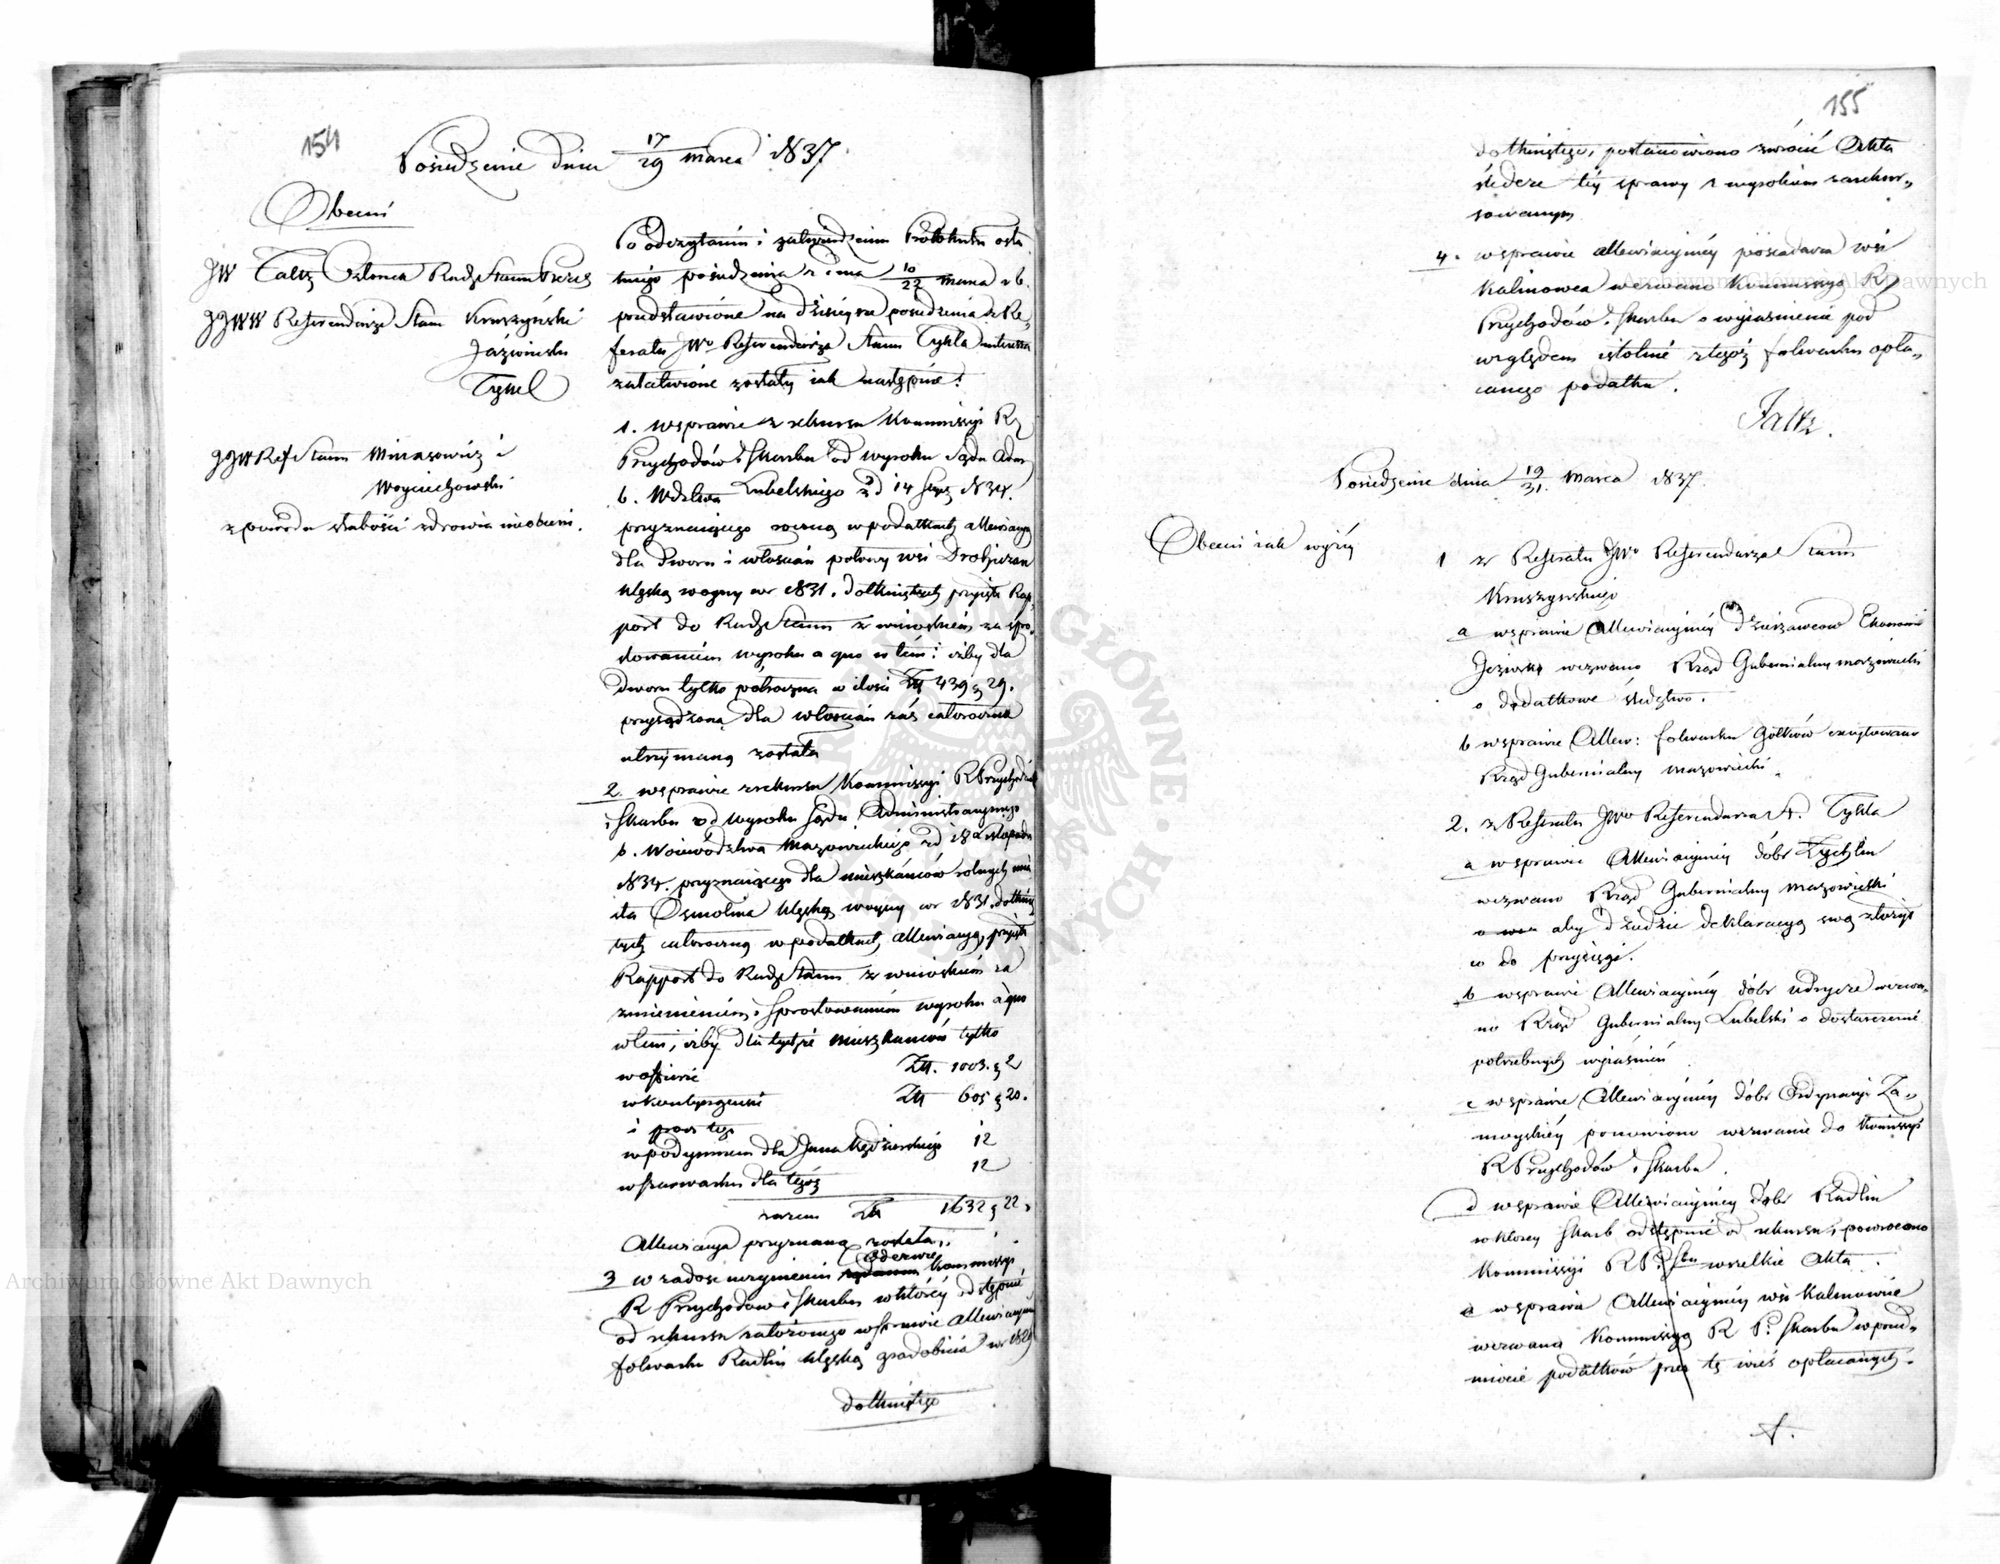 154
Posiedzenie dnia 17/29 marca 1837.
Obecni
JW Faltz Członek Rady Stanu Prezes
JJWW Referendarze Stanu Kruszyński
Jaźwiński
Tykel
JJW Ref Stanu Minasowicz i
Woyciechowski
z powodu słabości zdrowia nieobecni.
Po odczytaniu i zatwierdzeniu Protokułu osta
tniego posiedzenia z dnia 10/22 marca rb.
przedstawione na dzisieysze posiedzenia z Re,
feratu JWo Referendarza Stanu Tykla interessa
załatwione zostały iak następuie:
1. w sprawie z rekursu Kommissyi R
Przychodów i Skarbu od wyroku Sądu Adm
b. Wdztwa Lubelskiego z d 14 1834.
przyznaiącego roczną w podatkach allewiacyą
dla dworu i włościan połowy wsi
klęską woyny w r 1831. dotkniętych przyięto Rap,
port do Rady Stanu z wnioskiem za spro,
stowaniem wyroku a quo w tem: iżby dla
dworu tylko półroczna w ilości Zł 439 g 29.
przysądzoną dla włościan zaś całoroczna
utrzymaną została
2. w sprawie z rekursu Kommissyi R Przychodów
i Skarbu od wyroku Sądu Administracyinego
b. Woiewództwa Mazowieckiego z d 18 Listopada
1834. przyznaiącego dla mieszkańców rolnych mia
sta Osmolina klęską woyny w r 1831. dotknię
tych całoroczną w podatkach allewiacyą, przyięto
Rapport do Rady Stanu z wnioskiem za
zmienieniem i sprostowaniem wyroku a quo
w tem, iżby dla tychże mieszkańców tylko
w ofiarie Zł. 1003. g 2
w kontyngensie Zł 605 g 20.
i prócz tego
w podymnem dla Jana Kędzierskiego 12
w szarwarku dla tegóż 12
razem Zł 1632 g 22,
Allewiacya przyznaną została.
3 w zadosc uczynieniu Odezwie Kommissyi
R Przychodów i Skarbu w którey odstępuie
od rekursu założonego w sprawie allewiacyiney
folwarku Radlin klęską gradobicia w r 1829
dotkniętego
155
dotkniętego, postanowiono zwrócić Akta
śledcze téy sprawy z wyrokiem zarekur,,
sowanym
4. w sprawie allewiacyinéy posiadacza wsi
Kalinowca wezwano Kommissyą R
Przychodów i Skarbu o wyiaśnienie pod
względem istotnie z tegóż folwarku opła,,
canego podatku.
Faltz.
Posiedzenie dnia 19/31. Marca 1837.
Obecni iak wyżéy
1 z Referatu JWo Referendarza Stanu
Kruszyńskiego
a w sprawie Allewiacyinéy dzierżawców Ekonomii
Jeziorka wezwano Rząd Gubernialny mazowiecki
o dodatkowe śledztwo.
b w sprawie Allew: folwarku Gołków excytowano
Rząd Gubernialny mazowiecki.
2. z Referatu JWo Referendarza St. Tykla
a w sprawie Allewiacyinéy dóbr Żychlin
wezwano Rząd Gubernialny mazowiecki
aby dziedzic deklaracyą swą złożył
co do przysięgi.
b w sprawie Allewiacyinéy dóbr Udrycze wezwa,
no Rząd Gubernialny Lubelski o dostarczenie
potrzebnych wyiaśnień
c w sprawie Allewiacyinéy dóbr Ordynacyi Za,,
moyskiéy ponowiono wezwanie do Kommissyi
R Przychodów i Skarbu.
d w sprawie Allewiacyinéy dóbr Radlin
w którey Skarb odstępuie od rekursu, powrócono
Kommissyi R P. i Sku wszelkie Akta.
e w sprawie Allewiacyinéy wsi Kalinowiec
wezwano Kommissyą R P. i Skarbu w przed,,
miocie podatków przez tę wieś opłacanych.
F.
Archiwum Główne Akt Dawnych
Archiwum Główne Akt Dawnych
ARCHIWUM GŁÓWNE AKT DAWNYCH